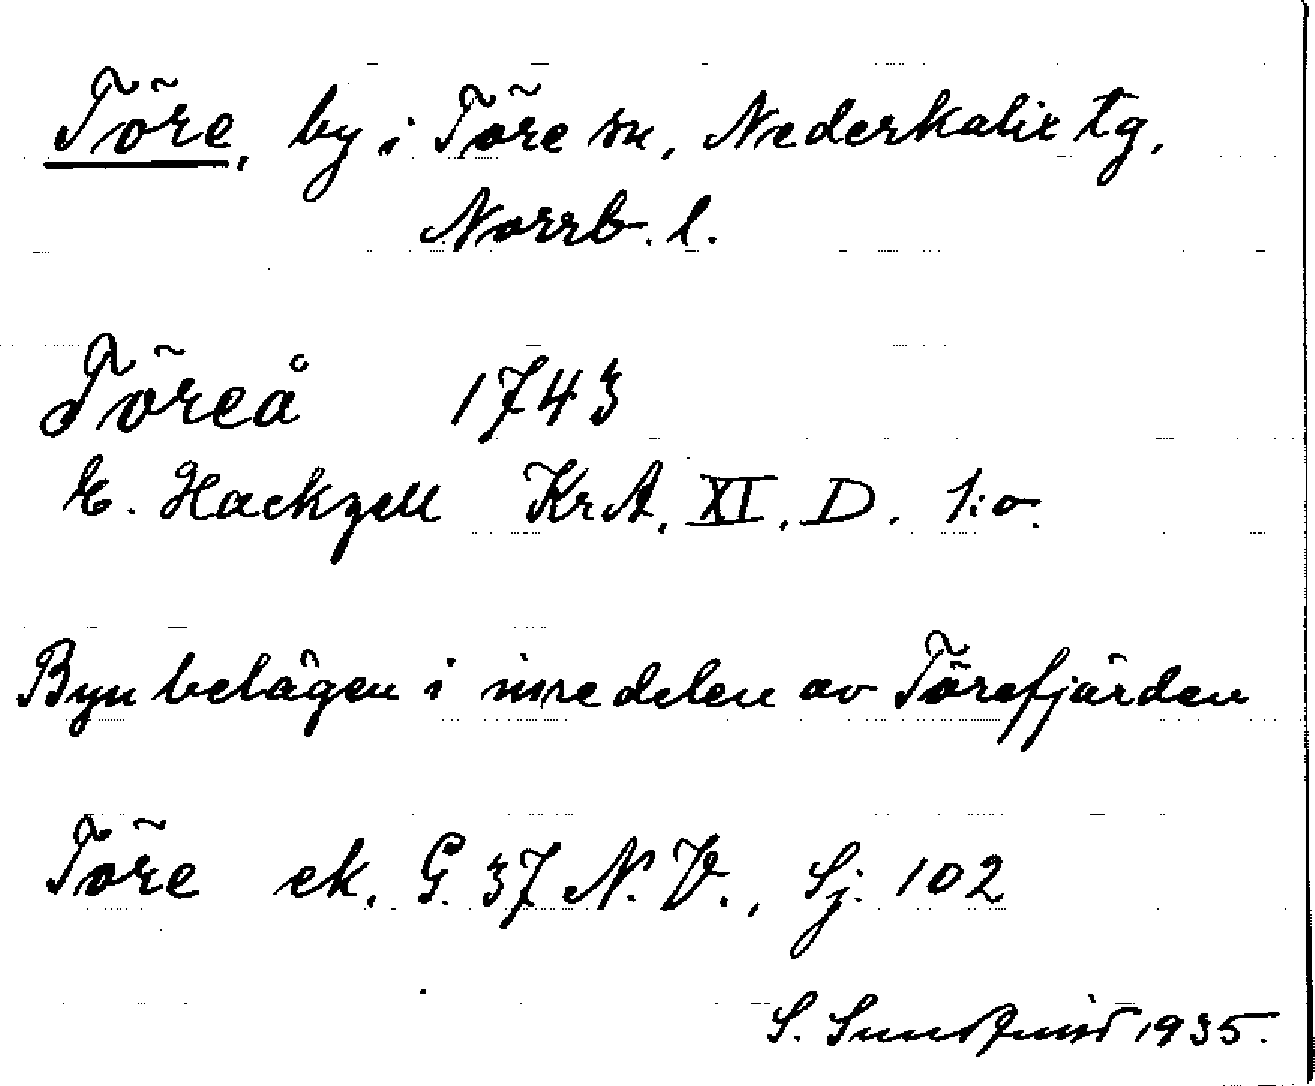 Töre, by i Töre sn, Nederkalix tg,
Norrb. l.
Töreå 1743
E. Hackzell KrA. XI. D. 1:o.
Byn belägen i inre delen av Törefjärden
Töre ek. G. 37 N. V., Sj. 102
S. Sundqvist 1935.